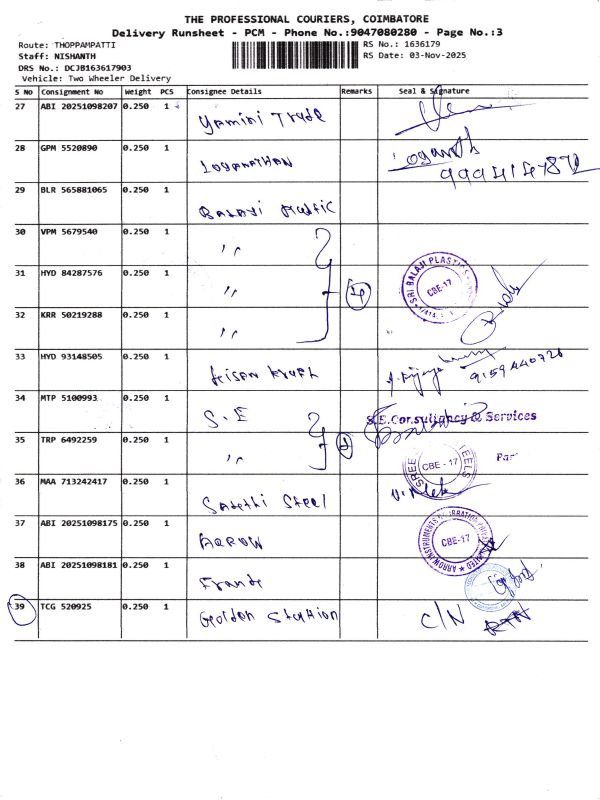 THE PROFESSIONAL COURIERS, COIMBATORE
Delivery Runsheet - PCM - Phone No.:9047080280 - Page No.:3
Route: THOPPAMPATTI RS No.: 1636179
Staff: NISHANTH RS Date: 03-Nov-2025
DRS No.: DCJB163617903
Vehicle: Two Wheeler Delivery
S No Consignment No Weight PCS Consignee Details Remarks Seal & Signature
27 ABI 20251098207 0.250 1 Yamini Trade
28 GPM 5520890 0.250 1 LOGANATHAN Loganath
29 BLR 565881065 0.250 1 Balaji
30 VPM 5679540 0.250 1 〃
31 HYD 84287576 0.250 1 〃 4 SRI BALAJI PLASTICS CBE-17
32 KRR 50219288 0.250 1 〃
33 HYD 93148505 0.250 1 9159440726
34 MTP 5100993 0.250 1 S.E S.E.Consultancy & Services
35 TRP 6492259 0.250 1 〃 SREE STEELS CBE - 17
36 MAA 713242417 0.250 1 Steel
37 ABI 20251098175 0.250 1 ARROW ARROW INSTRUMENTS CBE-17
38 ABI 20251098181 0.250 1
39 TCG 520925 0.250 1 Golden C/N